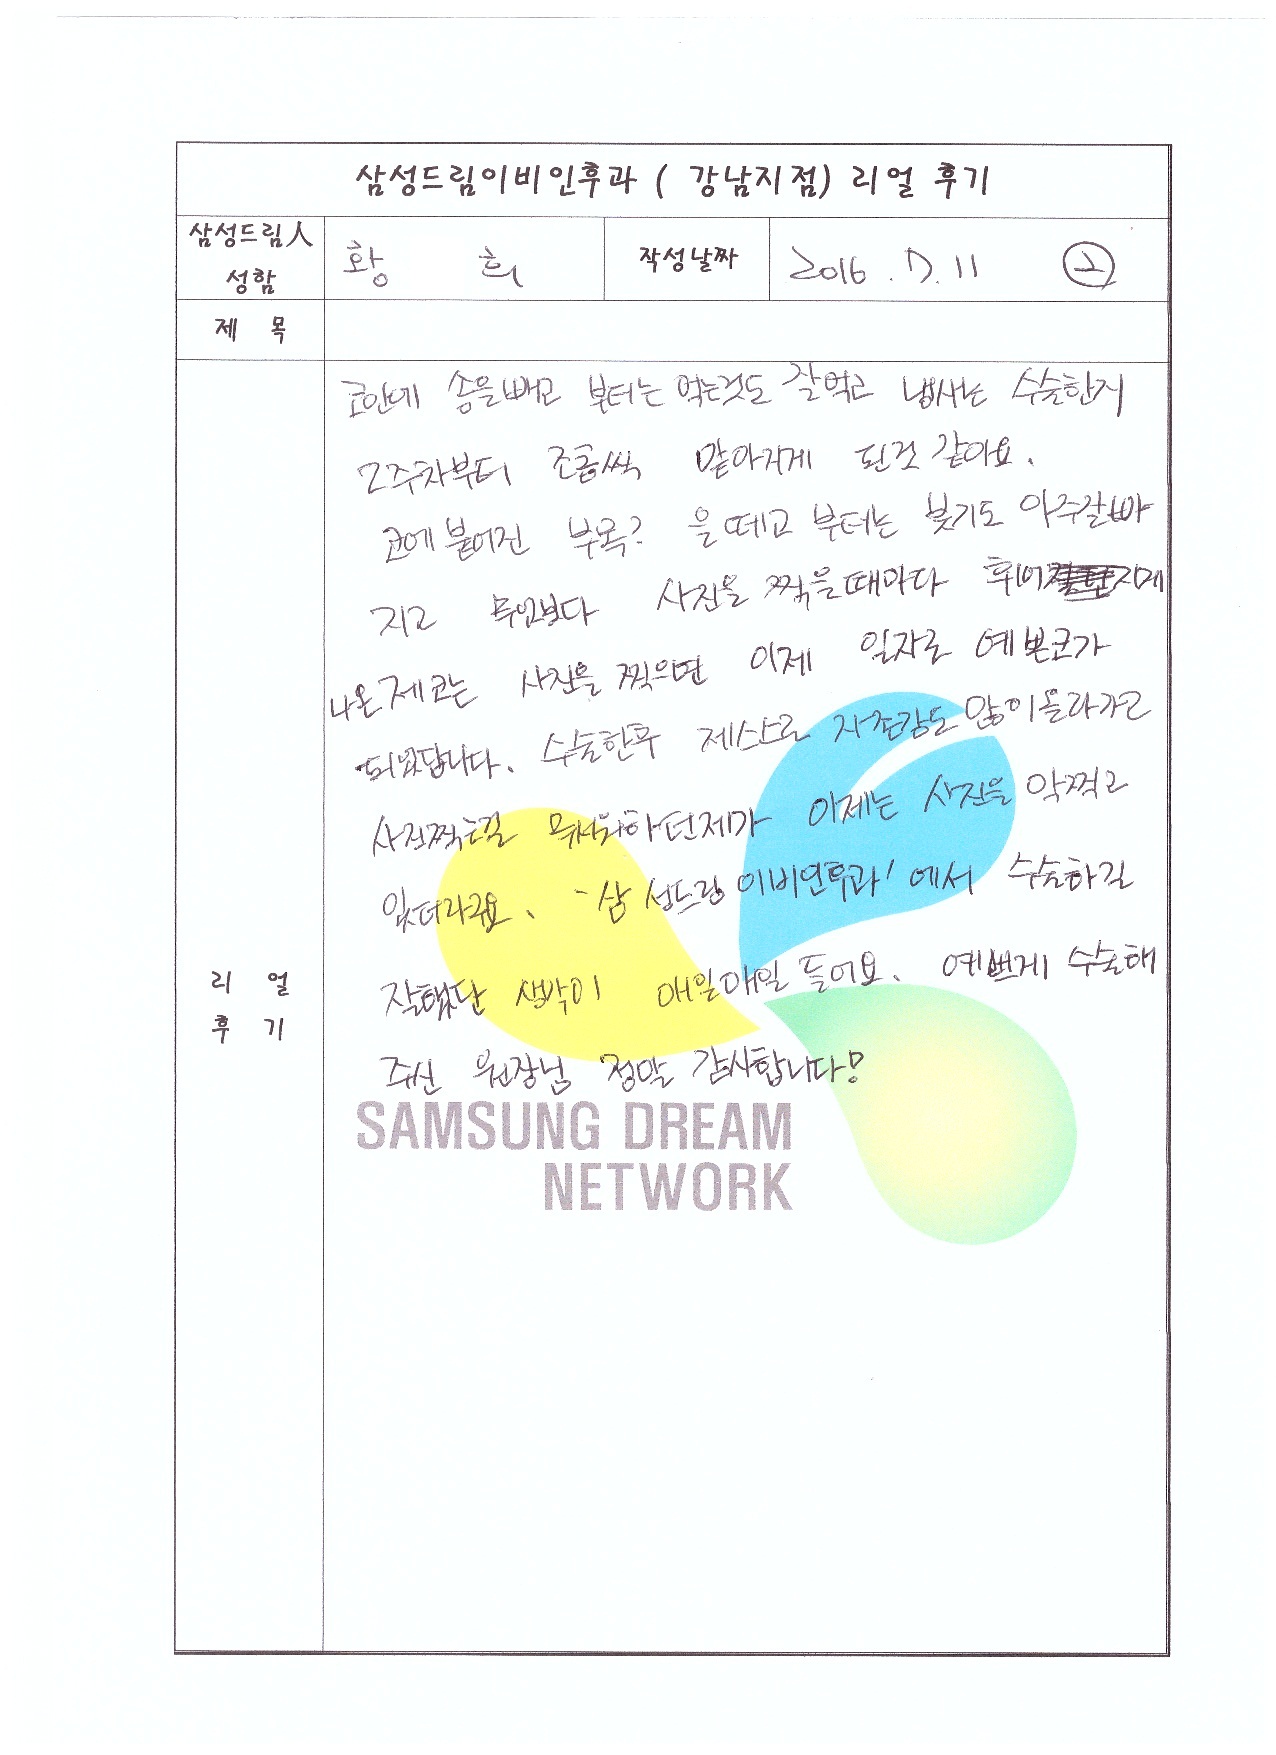 삼성드림이비인후과 ( 강남지점) 리얼 후기
삼성드림人 성함
황 희
작성날짜
2016 . 7. 11 ②
제 목
리 얼 후 기
코안에 솜을빼고 부터는 먹는것도 잘먹고 냄새는 수술한지
2주차부터 조금씩 맡아지게 된것 같아요.
코에 붙어진 부목? 을 떼고 부터는 붓기도 아주잘빠
지고 무엇보다 사진을 찍을때마다 휘어지게
나온 제코는 사진을 찍으면 이제 일자로 예쁜코가
되었답니다. 수술한후 제스스로 자존감도 많이올라가고
사진찍는걸 무서워하던제가 이제는 사진을 막찍고
있더라구요. '삼성드림이비인후과' 에서 수술하길
잘했단 생각이 매일매일 들어요. 예쁘게 수술해
주신 원장님 정말 감사합니다!
SAMSUNG DREAM
NETWORK